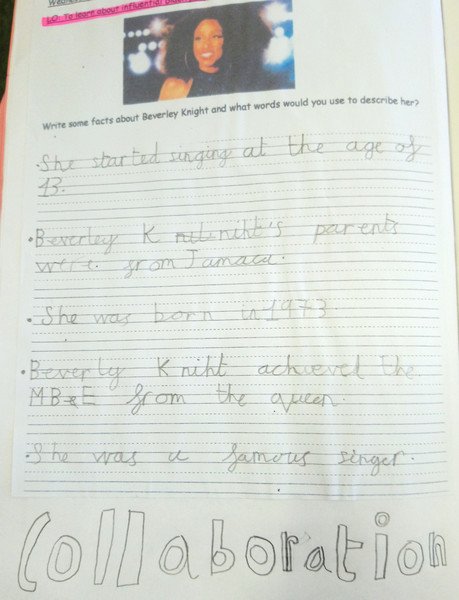 LO: To learn about influential
Write some facts about Beverley Knight and what words would you use to describe her?
•She started singing at the age of
13.
•Beverley K nit niht's parents
were from Jamaca.
• She was born in 1973.
•Beverly K niht achieved the
MB E from the queen.
•She was a famous singer.
Collaboration